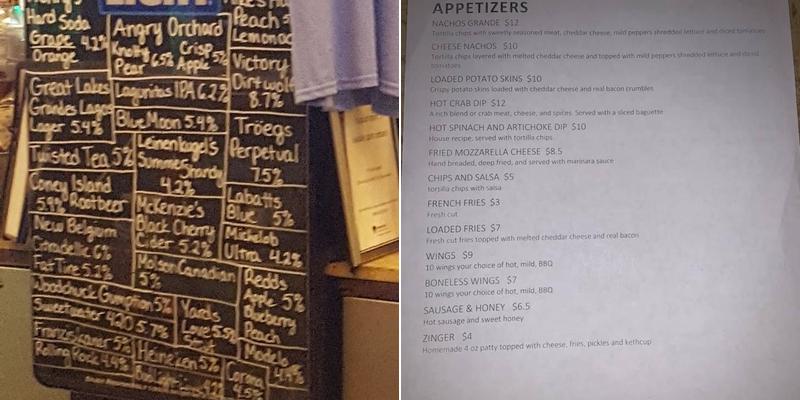 Hard Soda
Grape 4.2%
Orange
Great Lakes
Grandes Lagos
Lager 5.4%
Twisted Tea 5%
Coney Island
5.9% Rootbeer
New Belgium
Citradelic 6%
Fat Tire 5.2%
Woodchuck Gumption 5%
Sweetwater 420 5.7%
Franziskaner 5%
Rolling Rock 4.4%
Angry Orchard
Knotty 6.5% Crisp
Pear Apple 5%
Lagunitas IPA 6.2%
Blue Moon 5.4%
Leinenkugel's
Summer Shandy
4.2%
McKenzie's
Black Cherry
Cider 5.2%
Molson Canadian
5%
Yards
Love 5.5%
Heineken 5%
Peach
Lemonad
Victory
Dirtwolf
8.7%
Tröegs
Perpetual
7.5%
Labatts
Blue 5%
Michelob
Ultra 4.2%
Redds
Apple 5%
Blueberry
Peach
Modelo
4.4%
Corona
4.5%
APPETIZERS
NACHOS GRANDE $12
Tortilla chips with sweetly seasoned meat, cheddar cheese, mild peppers shredded lettuce and diced tomatoes
CHEESE NACHOS $10
Tortilla chips layered with melted cheddar cheese and topped with mild peppers shredded lettuce and diced
tomatoes
LOADED POTATO SKINS $10
Crispy potato skins loaded with cheddar cheese and real bacon crumbles
HOT CRAB DIP $12
A rich blend or crab meat, cheese, and spices. Served with a sliced baguette
HOT SPINACH AND ARTICHOKE DIP $10
House recipe, served with tortilla chips
FRIED MOZZARELLA CHEESE $8.5
Hand breaded, deep fried, and served with marinara sauce
CHIPS AND SALSA $5
tortilla chips with salsa
FRENCH FRIES $3
Fresh cut
LOADED FRIES $7
Fresh cut fries topped with melted cheddar cheese and real bacon
WINGS $9
10 wings your choice of hot, mild, BBQ
BONELESS WINGS $7
10 wings your choice of hot, mild, BBQ
SAUSAGE & HONEY $6.5
Hot sausage and sweet honey
ZINGER $4
Homemade 4 oz patty topped with cheese, fries, pickles and kethcup